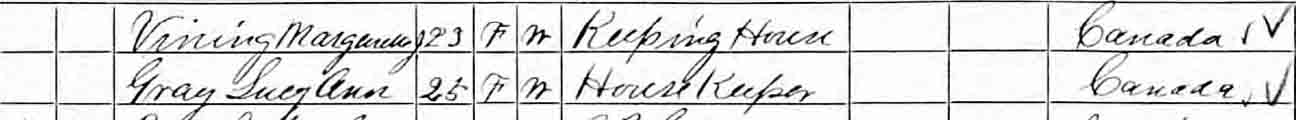 Vining Margaret 23 F W Keeping House Canada
Gray Lucy Ann 25 F W House Keeper Canada